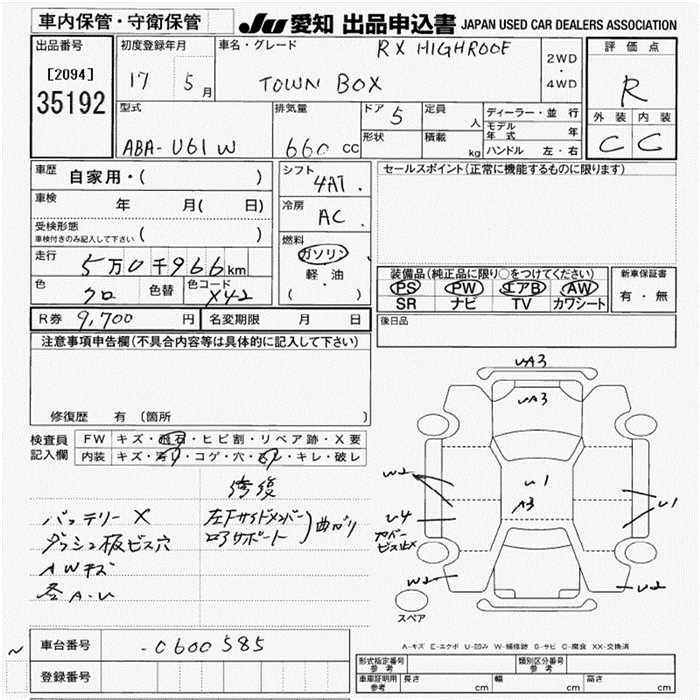 車内保管・守衛保管
JU 愛知 出品申込書 JAPAN USED CAR DEALERS ASSOCIATION
出品番号
[2094]
35192
初度登録年月
17 5月
車名・グレード
RX HIGHROOF
TOWN BOX
2WD
・
4WD
評価点
R
外装 内装
C C
型式
ABA-U61W
排気量
660 cc
ドア 5
形状
定員 人
積載 kg
ディーラー・並行
モデル年式 年
ハンドル 左・右
車歴
自家用・( )
車検 年 月( 日)
受検形態
車検付きのみ記入して下さい ( )
走行
5万0千966km
色 クロ 色替 色コード X42
シフト
4AT
冷房
AC
燃料
ガソリン
軽油
( )
セールスポイント(正常に機能するものに限ります)
装備品(純正品に限り○をつけてください)
PS PW エアB AW
SR ナビ TV カワシート
新車保証書
有・無
R券 9,700 円 名変期限 月 日
後日品
注意事項申告欄(不具合内容等は具体的に記入して下さい)
修復歴 有(箇所 )
検査員記入欄
FW キズ・飛石・ヒビ割・リペア跡・X要
内装 キズ・汚レ・コゲ・穴・スレ・キレ・破レ
修復
バッテリー X
ダッシュ板ビス穴
AWキズ
各A.U
左下サイドメンバー
ロアサポート
曲がり
UA3
UA3
W2
U1
A3
U4
U1
W2
U2
スペア
A-キズ E-エクボ U-凹み W-補修跡 S-サビ C-腐食 XX-交換済
車台番号 -0600585
登録番号
形式指定番号 参考
類別区分番号 参考
車庫証明用 参考 長さ cm 幅 cm 高さ cm